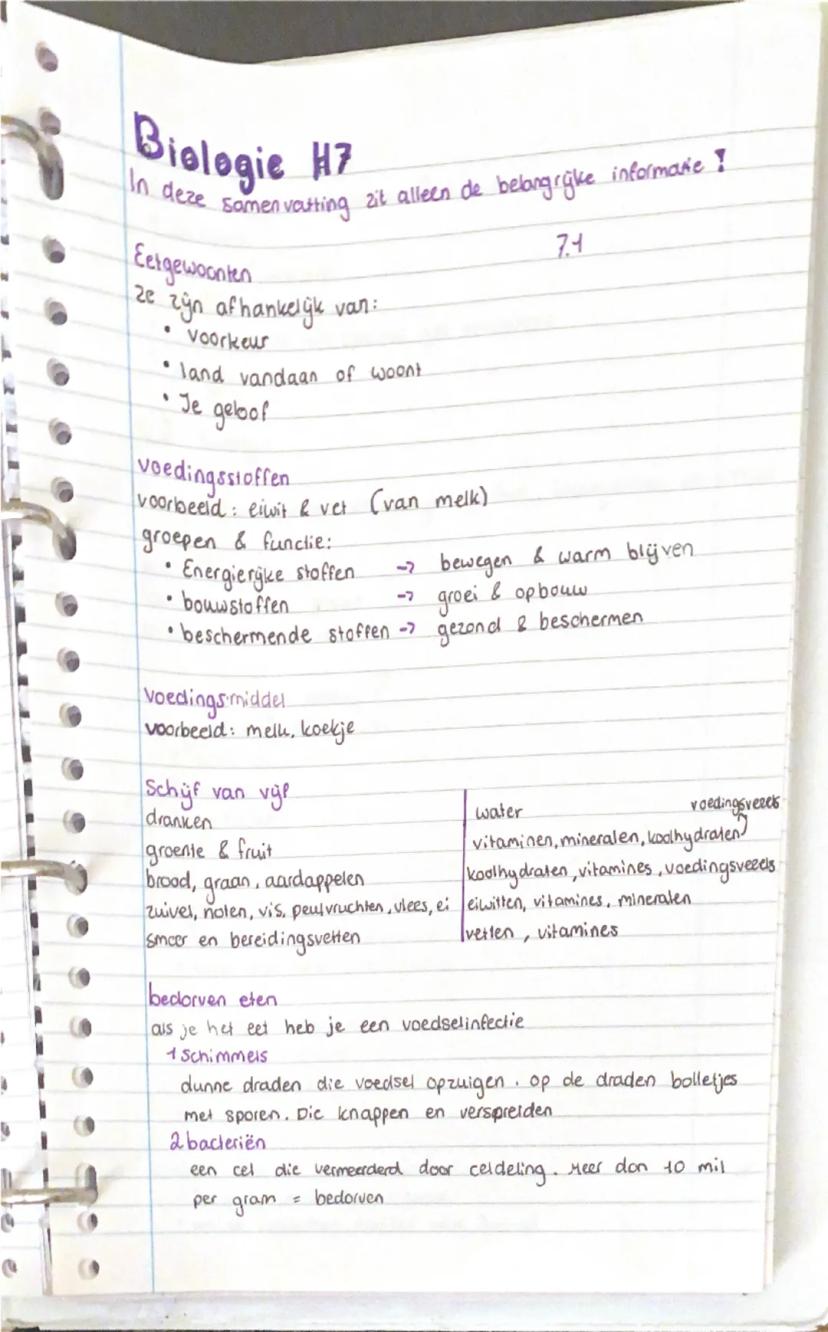 Biologie H7
In deze samenvatting zit alleen de belangrijke informatie !
7.1
Eetgewoonten
ze zijn afhankelijk van:
• voorkeur
• land vandaan of woont
• Je geloof
voedingsstoffen
voorbeeld: eiwit & vet (van melk)
groepen & functie:
• Energierijke stoffen -> bewegen & warm blijven
• bouwstoffen -> groei & opbouw
• beschermende stoffen -> gezond & beschermen
voedingsmiddel
voorbeeld: melk, koekje
Schijf van vijf
dranken | water
groente & fruit | vitaminen, mineralen, koolhydraten, voedingsvezels
brood, graan, aardappelen | koolhydraten, vitamines, voedingsvezels
zuivel, noten, vis, peulvruchten, vlees, ei | eiwitten, vitamines, mineralen
smeer en bereidingsvetten | vetten, vitamines
bedorven eten
als je het eet heb je een voedselinfectie
1 Schimmels
dunne draden die voedsel opzuigen. op de draden bolletjes
met sporen. Die knappen en verspreiden
2 bacteriën
een cel die vermeerderd door celdeling. Meer dan 10 mil
per gram = bedorven